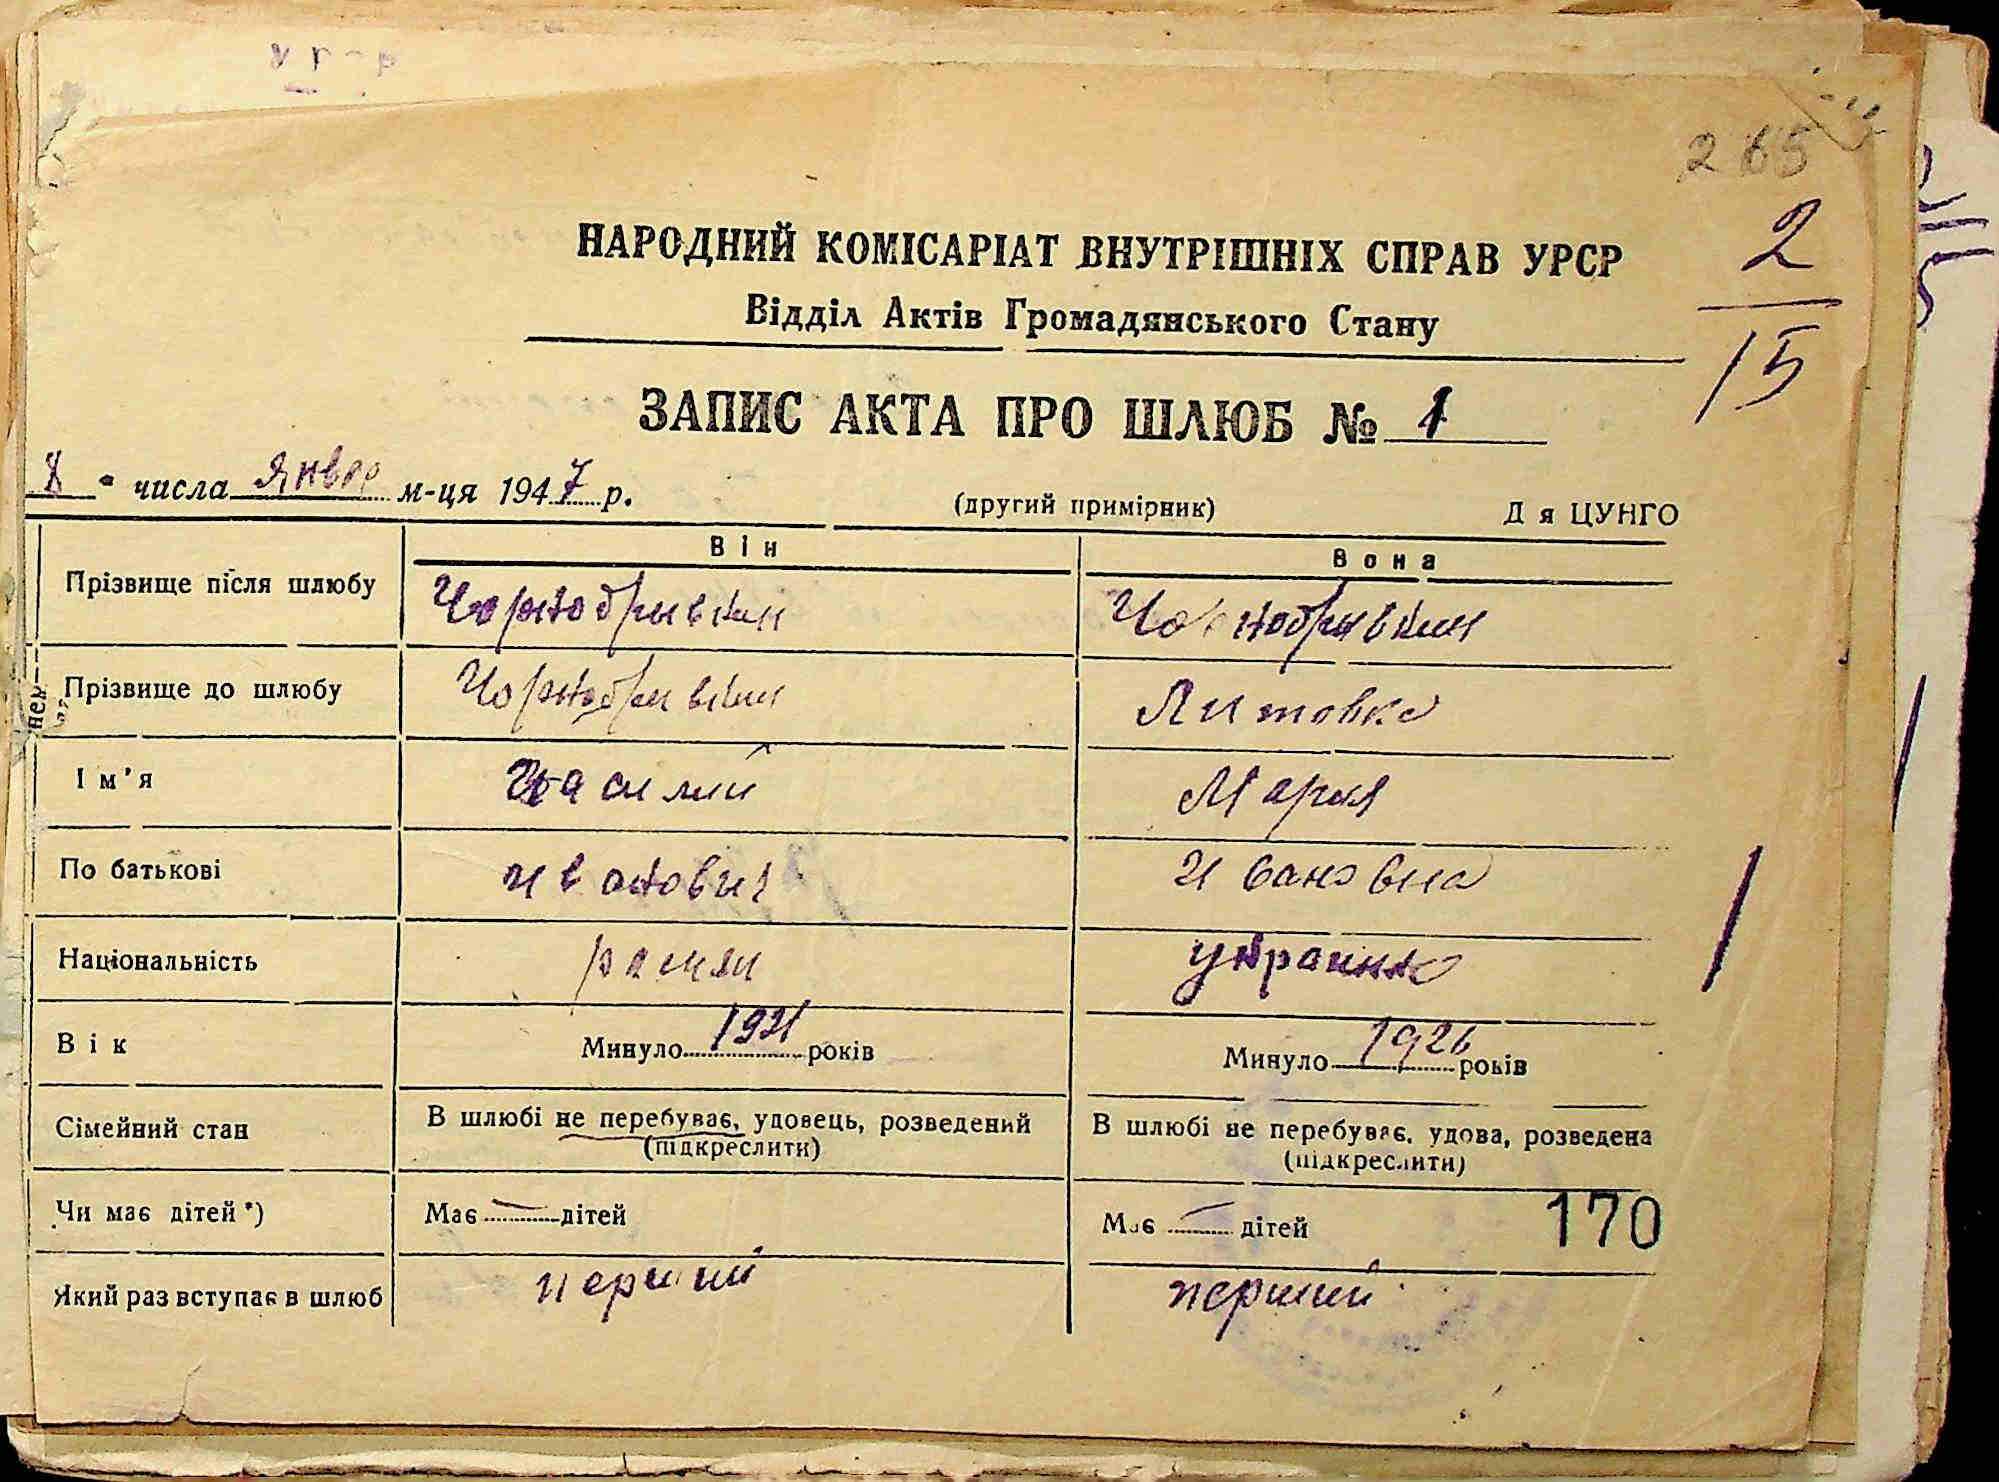 265
2
15
НАРОДНИЙ КОМІСАРІАТ ВНУТРІШНІХ СПРАВ УРСР
Відділ Актів Громадянського Стану
ЗАПИС АКТА ПРО ШЛЮБ № 1
8 " числа январ м-ця 1947 р. (другий примірник) Д я ЦУНГО
Він Вона
Прізвище після шлюбу Чорнобрывкин Чорнобрывкин
Прізвище до шлюбу Чорнобрывкин Литовка
Ім'я Василий Мария
По батькові Иванович Ивановна
Національність украинка
Вік Минуло 1921 років Минуло 1926 років
Сімейний стан В шлюбі не перебуває, удовець, розведений (підкреслити) В шлюбі не перебуває, удова, розведена (підкреслити)
Чи має дітей*) Має — дітей Має — дітей
170
Який раз вступає в шлюб перший перший